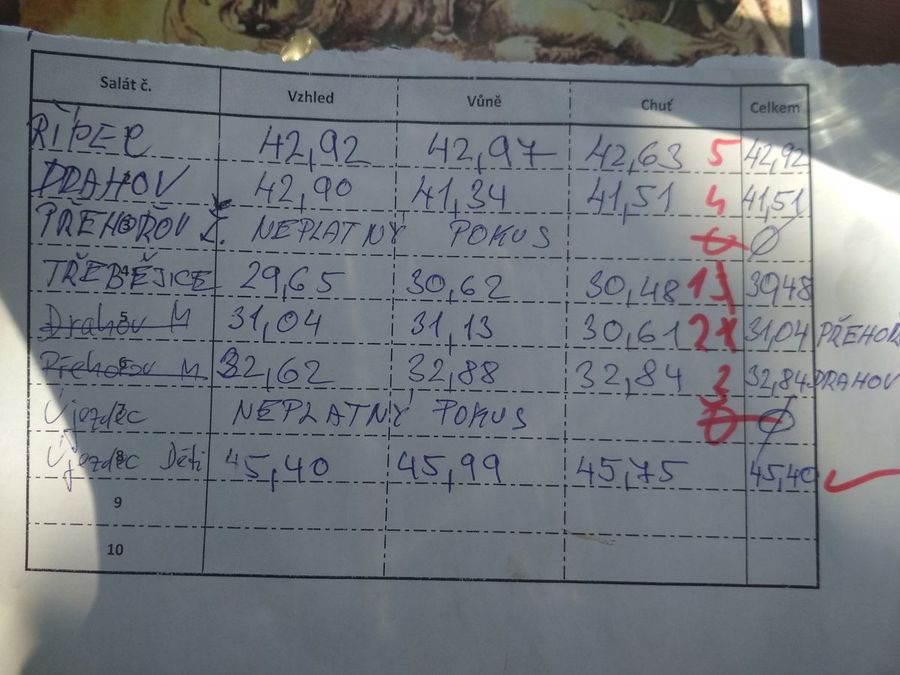 Salát č. Vzhled Vůně Chuť Celkem
ŘÍPEC 42,92 42,97 42,63 5 42,92
DRAHOV 42,90 41,34 41,51 4 41,51
PŘEHOŘOV Ž. NEPLATNÝ POKUS Ø
TŘEBĚJICE 29,65 30,62 30,48 1 30,48
Drahov M 31,04 31,13 30,61 2 31,04 PŘEHOŘ
Přehořov M 32,62 32,88 32,84 3 32,84 DRAHOV
Újezdec NEPLATNÝ POKUS Ø
Újezdec Děti 45,40 45,99 45,75 45,40
9
10